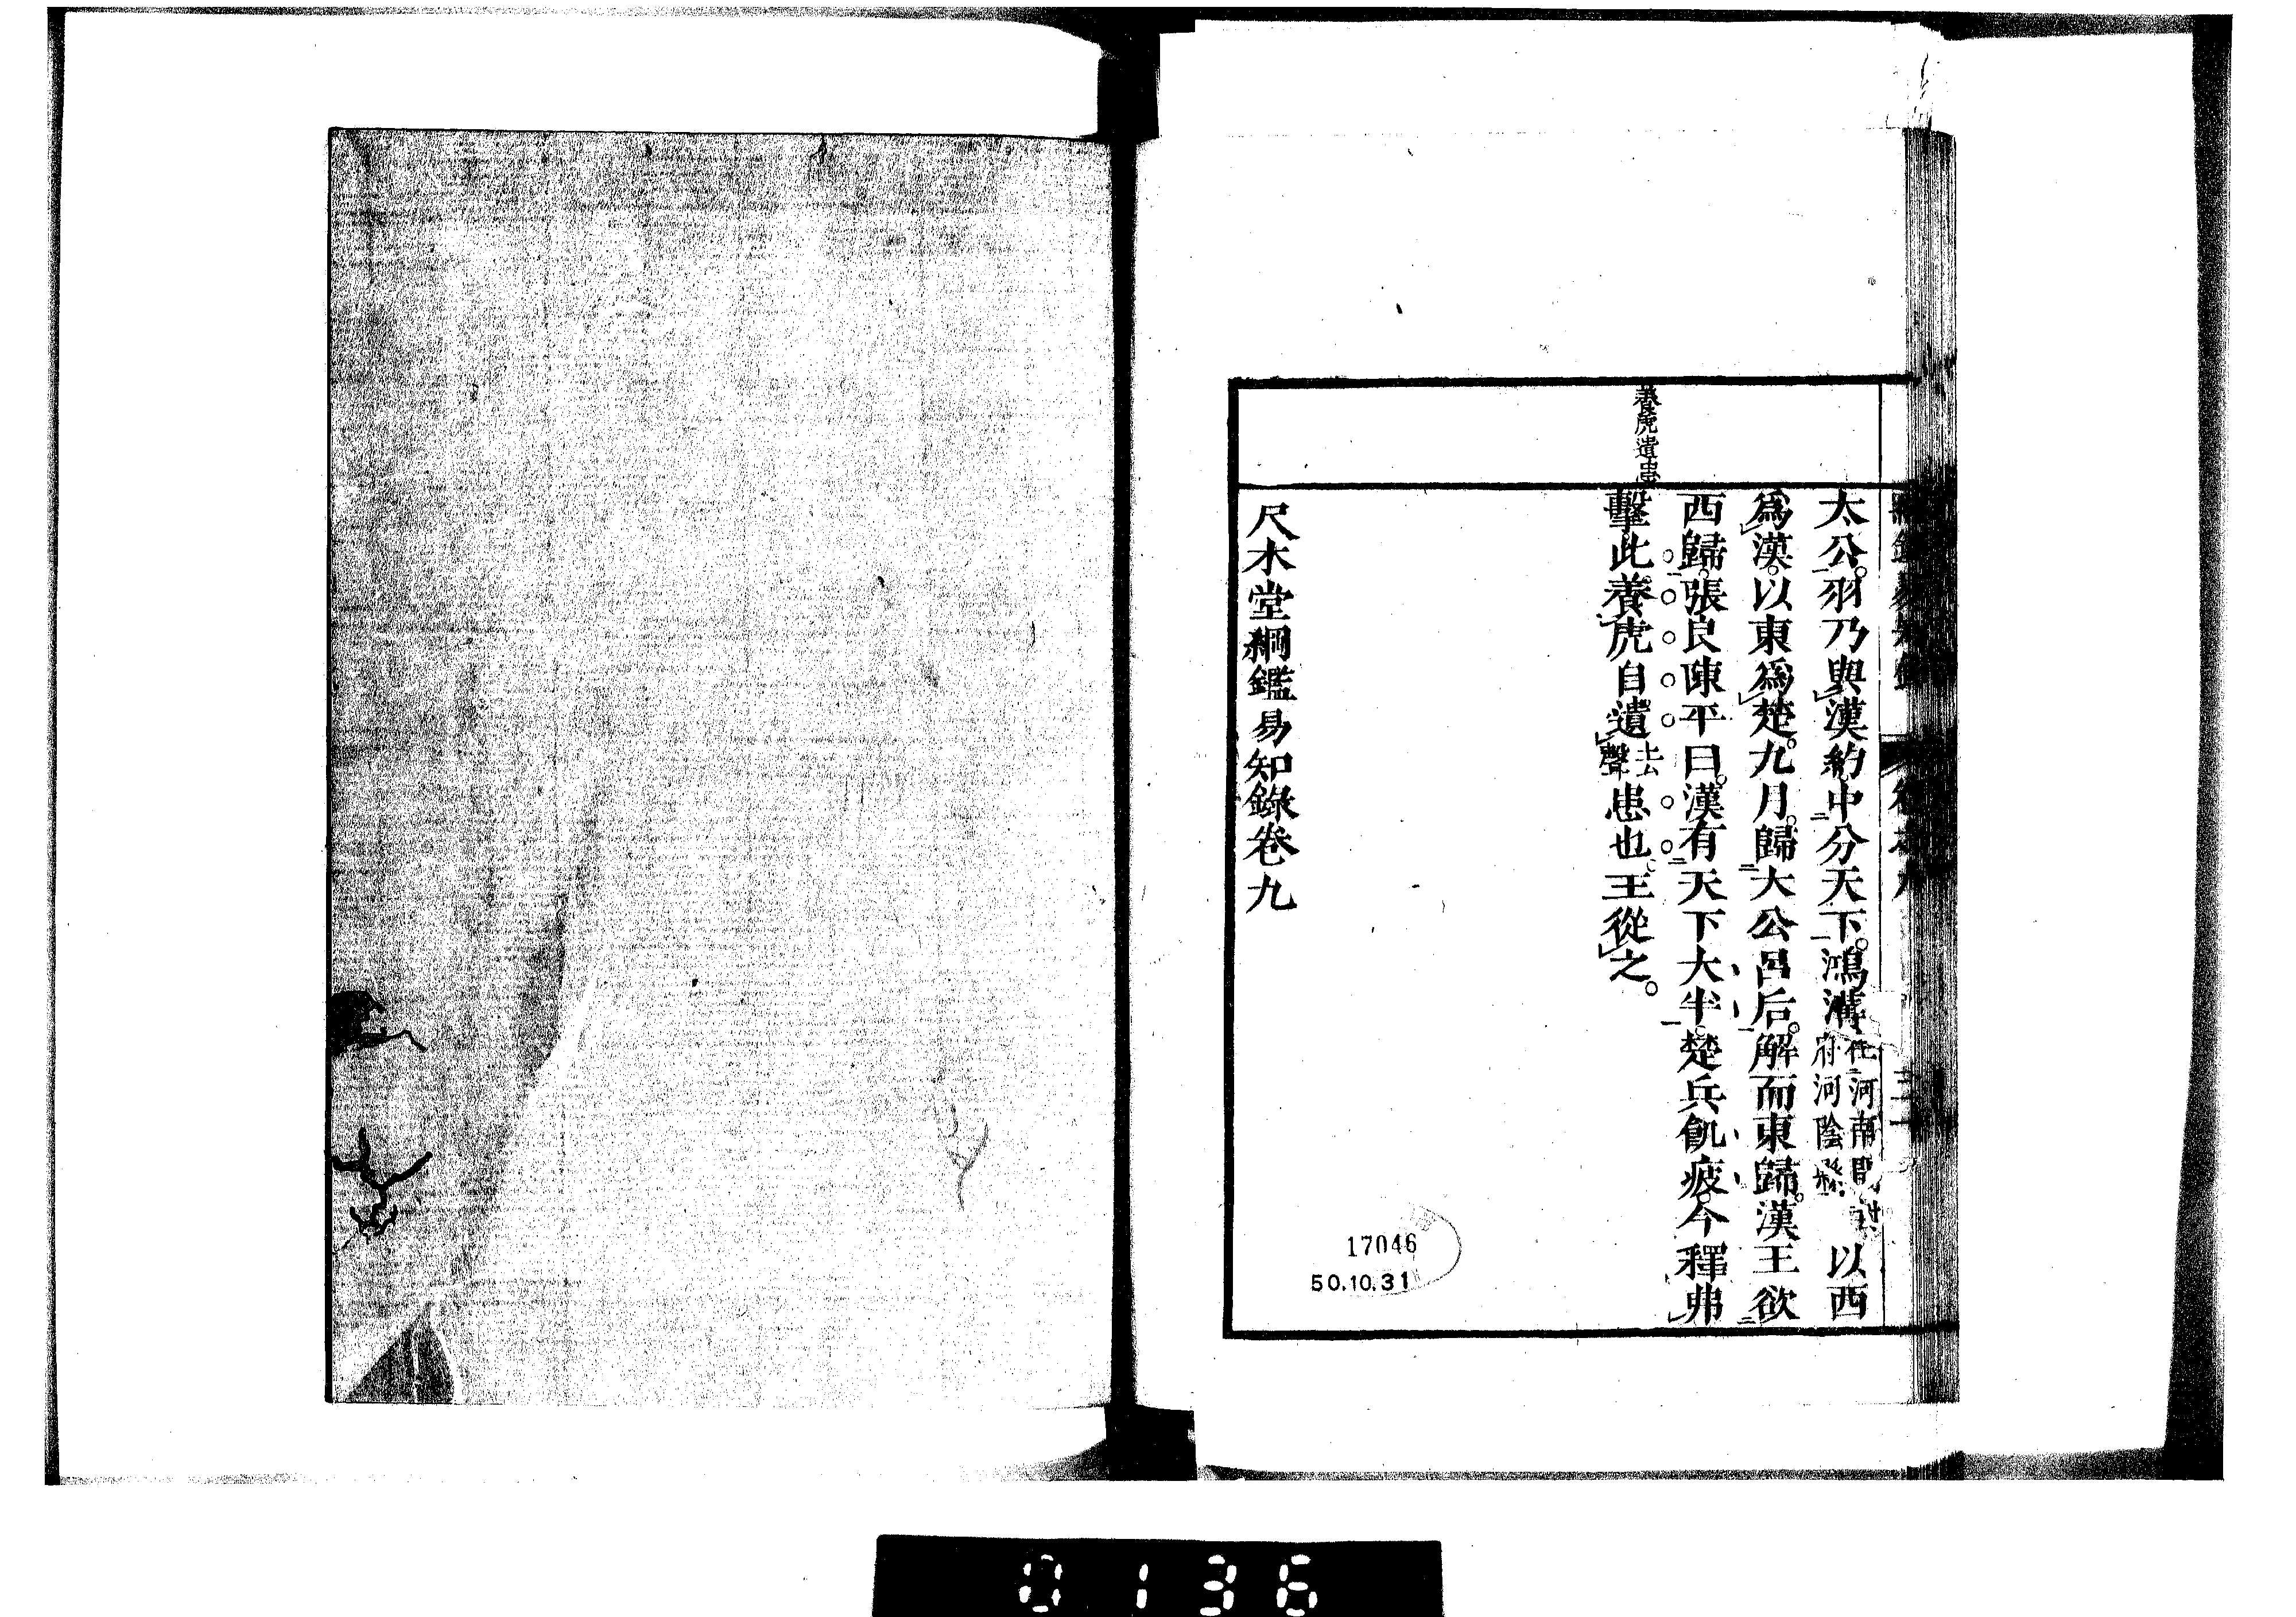 養虎遺患
太公羽乃與漢約中分天下鴻溝在河南開封府河陰縣以西
爲漢以東爲楚九月歸太公呂后解而東歸漢王欲
西歸張良陳平曰漢有天下大半楚兵飢疲今釋弗
擊此養虎自遺去聲患也王從之。
尺木堂綱鑑易知錄卷九
17046
50.10.31
0136